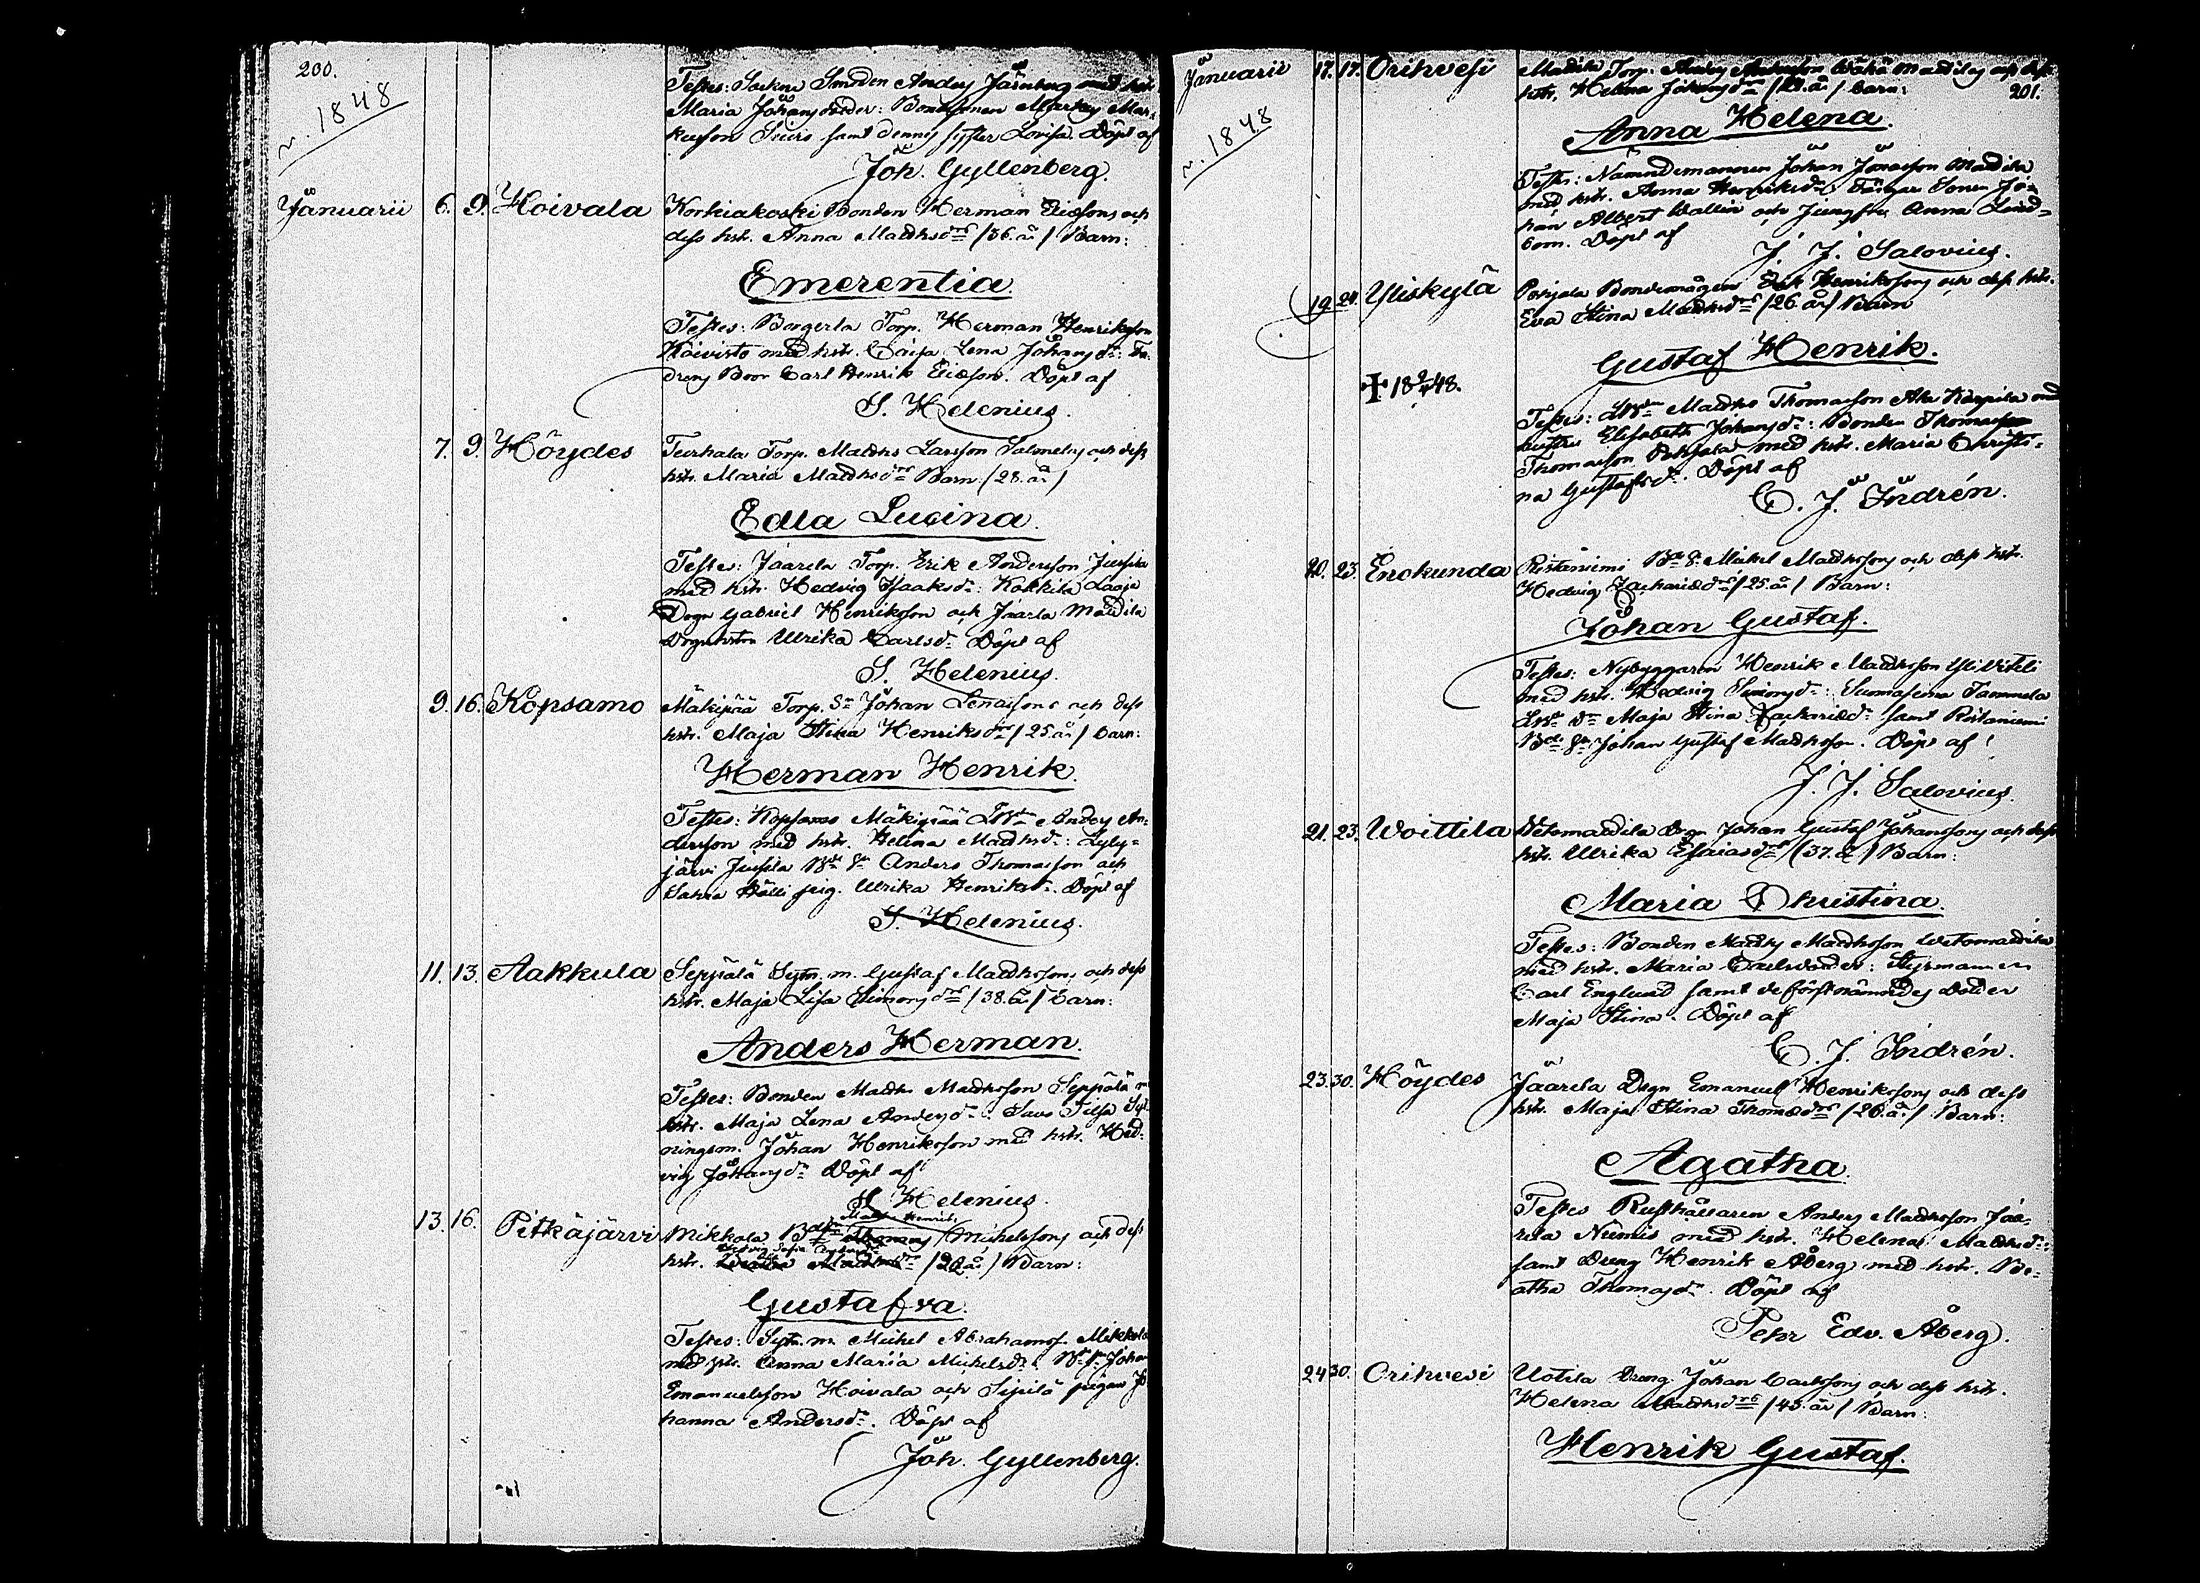 200.
1848
Testes: Sockne Smeden Anders Järnberg med hstr
Maria Johansdotter: Bondesonen Markus Mar-
kusson Seiro samt dennes syster Lovisa. Döpt af
Joh. Gyllenberg.
Januarii 6. 9. Hoivala Korkiakoski Bonden Herman Ericssons och
dess hstr. Anna Matthsdrs /36. år/ Barn:
Emerentia.
Testes: Borgerla Torp. Herman Henriksson
Koivisto med hstr. Caisa Lena Johansdr:
Carl Henrik Ericsson. Döpt af
S. Helenius.
7. 9. Höydes Teerhala Torp. Matths Larsson Salmelas och dess
hstr. Maria Matthsdrs Barn. /28. år/
Edla Lucina.
Testes: Jaarela Torp. Erik Andersson Jussila
med hstr. Hedvig Isaaksdr: Kokkila
Gabriel Henriksson och Jaarla Mattila
Ulrika Carlsdr. Döpt af
S. Helenius.
9. 16. Kopsamo Mäkipää Torp. Sn Johan Lenassons och dess
hstr. Maja Stina Henriksdrs /25. år/ barn:
Herman Henrik.
Testes: Kopsamo Mäkipää Anders An-
dersson med hstr. Helena Matthsdr: Lyly-
järvi Jussila Anders Thomasson och
Sahra Hälli pig. Ulrika Henriksdr. Döpt af
S. Helenius.
11. 13. Aakkula Seppälä Sytn. m. Gustaf Matthssons och dess
hstr. Maja Lisa Simonsdrs /38. år/ barn:
Anders Herman.
Testes: Bonden Matths Matthsson Seppälä m
hstr. Maja Lena Andersdr: Savo
ningsm. Johan Henriksson med hstr. Hed-
vig Johansdr Döpt af
S. Helenius.
Matts Henrik
13. 16. Pitkäjärvi Mikkola Michelssons och dess
Hedvig Sofia
hstr. /20 år/ Barn:
Gustafva.
Testes: Sytn. m. Michel Abrahamss. Mikkola
med hstr. Anna Maria Michelsdr: Johan
Emanuelsson Hoivala och Sipilä pigan Jo
hanna Andersdr. Döpt af
Joh. Gyllenberg.
Januarii 17. 17. Orihvesi Mattila Torp. Wähä Mattilas och dess
hstr. Helena Johansdrs barn:
201.
1848
Anna Helena.
Testes: Nämndemannen Johan Jonasson Mattila
med hstr. Anna Henriksdr: Sonen Jo-
han Albert Wallin och Jungfru Anna Lind-
bom. Döpt af
J. J. Salovius.
19. 24. Yliskylä Pohjala Bondemågen Erik Henrikssons och dess hstr.
Eva Stina Matthsdrs /26 år/ Barn
Gustaf Henrik.
✝ 18 48.
Testes: Matths Thomasson Ala Karpila med
hustru Elisabeth Johansdr: Bonden Thomas
Thomasson Pohjala med hstr. Maria Christi-
na Gustafsdr. Döpt af
C. J. Indrén.
20. 23. Enokunda Ristaniemi Michel Matthssons och dess hstr.
Hedvig Zachariædrs /25. år/ Barn:
Johan Gustaf.
Testes: Nybyggaren Henrik Matthsson Yli Vihli
med hstr. Hedvig Simonsdr: Tammela
Maja Stina Zachariædr samt Ristaniemi
Johan Gustaf Matthsson. Döpt af
J. J. Salovius.
21. 23. Woittila Wetomattila Johan Gustaf Johanssons och dess
hstr. Ulrika Esaiasdrs /37. år/ Barn:
Maria Christina.
Testes: Bonden Matths Matthsson Wetomattila
med hstr. Maria Carlsdotter: Styrmannen
Carl Englund samt de förstnämndes dotter
Maja Stina. Döpt af
C. J. Indrén.
23. 30. Höydes Jaarila Emanuel Henrikssons och dess
hstr. Maja Stina Thomædrs /26. år/ Barn:
Agatha.
Testes Rusthållaren Anders Matthsson Jaa-
rila Niemis med hstr. Helena Matthsdr:
samt Dreng Henrik Åberg med hstr. Be-
atha Thomasdr. Döpt af
Pehr Edv. Åberg.
24 30. Orihvesi Uotila Dreng Johan Carlssons och dess hstr.
Helena Matthsdrs /43. år/ Barn:
Henrik Gustaf.